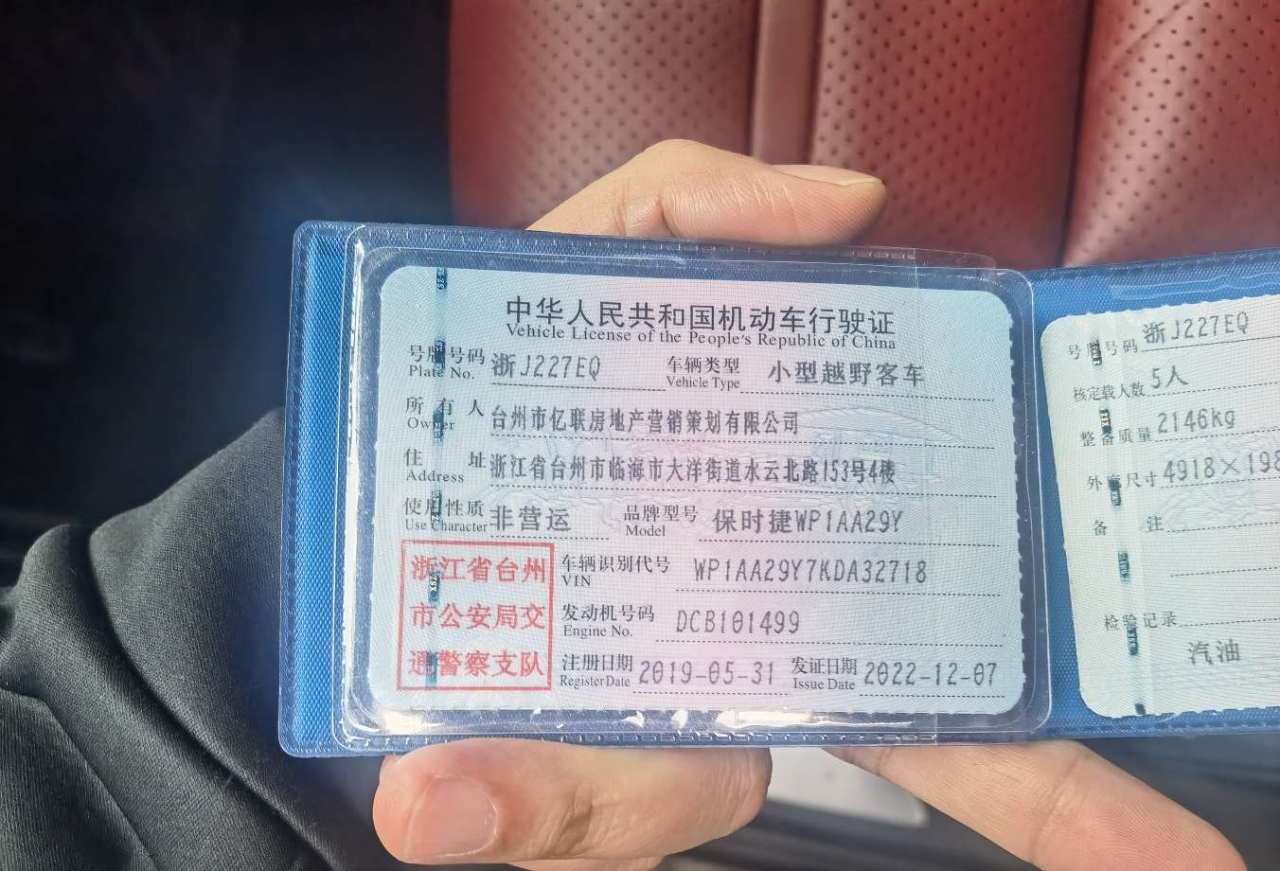 中华人民共和国机动车行驶证
Vehicle License of the People's Republic of China
号牌号码 浙J227EQ 车辆类型 小型越野客车
Plate No. Vehicle Type
所有人 台州市亿联房地产营销策划有限公司
Owner
住址 浙江省台州市临海市大洋街道水云北路153号4楼
Address
使用性质 非营运 品牌型号 保时捷WP1AA29Y
Use Character Model
浙江省台州
市公安局交
通警察支队
车辆识别代号 WP1AA29Y7KDA32718
VIN
发动机号码 DCB101499
Engine No.
注册日期 2019-05-31 发证日期 2022-12-07
Register Date Issue Date
号牌号码 浙J227EQ
核定载人数 5人
整备质量 2146kg
外廓尺寸 4918×198
备注
检验记录
汽油